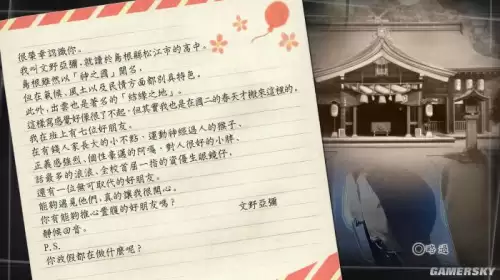 很榮幸認識你。
我叫文野亞彌，就讀於島根縣松江市的高中。
島根雖然以「神之國」聞名，
但在氣候、風土以及民情方面都別具特色。
此外，出雲也是著名的「結緣之地」。
這樣寫感覺好像很了不起，但其實我也是在國二的春天才搬來這裡的。
我在班上有七位好朋友。
在有錢人家長大的小不點、運動神經過人的猴子、
正義感強烈、個性豪邁的阿
話最多的浪浪、全校首屈一指的資優生眼鏡仔，
還有一位無可取代的好朋友。
能夠遇見他們，真的讓我很開心。
你有能夠推心置腹的好朋友嗎？
靜候回音。
文野亞彌
P.S.
你放假都在做什麼呢？
略過
GAMERSKY